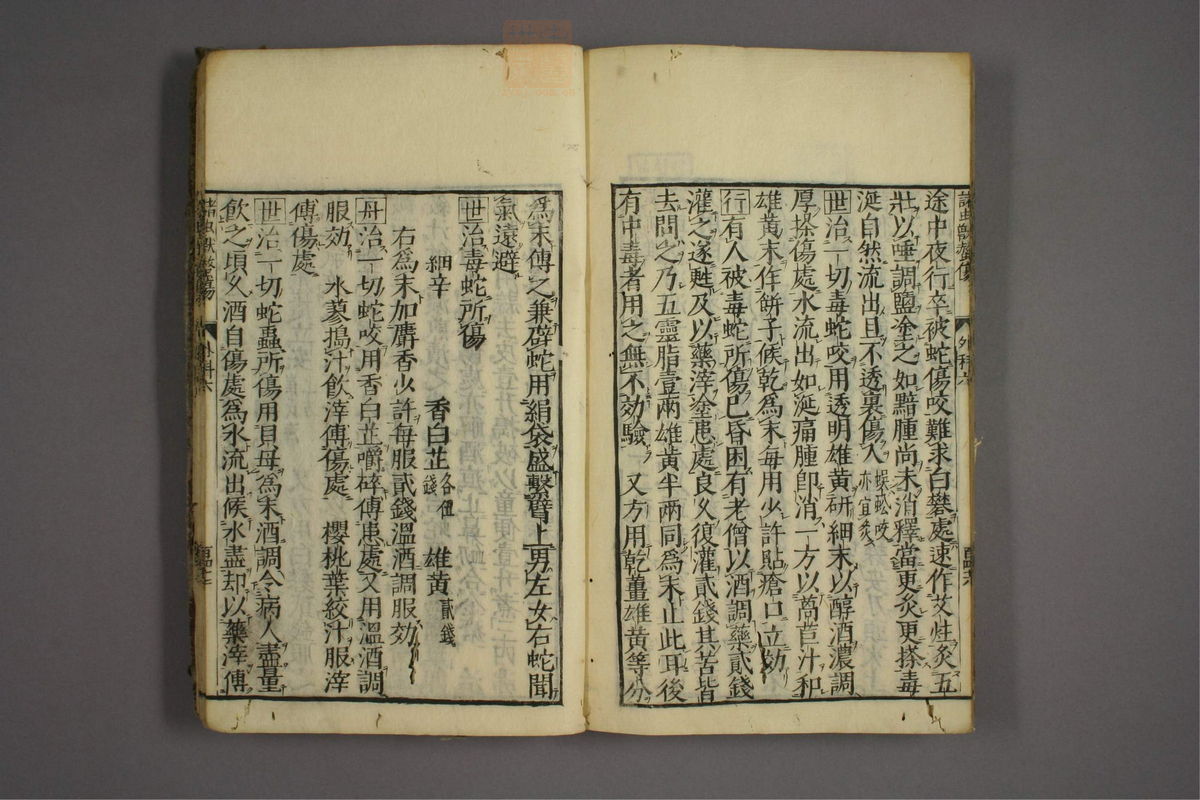 途中夜行卒被蛇傷咬難求白礬處速作艾炷灸五
壯以唾調鹽塗之如黯腫尚未消釋當更灸更搽毒
涎自然流出且不透裏傷人蜈蚣咬亦宜灸
世治一切毒蛇咬用透明雄黃研細末以醇酒濃調
厚搽傷處水流出如涎痛腫即消一方以萵苣汁和
雄黃末作餅子候乾爲末每用少許貼瘡口立効
行有人被毒蛇所傷已昏困有老僧以酒調藥貳錢
灌之遂甦及以藥滓塗患處良久復灌貳錢其苦皆
去問之乃五靈脂壹兩雄黃半兩同爲末止此耳後
有中毒者用之無不効驗 又方用乾薑雄黃等分
爲末傅之兼辟蛇用絹袋盛繫臂上男左女右蛇聞
氣遠避
世治毒蛇所傷
細辛 香白芷各伍錢 雄黃貳錢
右爲末加麝香少許每服貳錢溫酒調服効
丹治一切蛇咬用香白芷嚼碎傅患處又用溫酒調
服効 水蓼搗汁飲滓傅傷處 櫻桃葉絞汁服滓
傅傷處
世治一切蛇蟲所傷用貝母爲末酒調令病人盡量
飲之頃久酒自傷處爲水流出候水盡却以藥滓傅
外科六